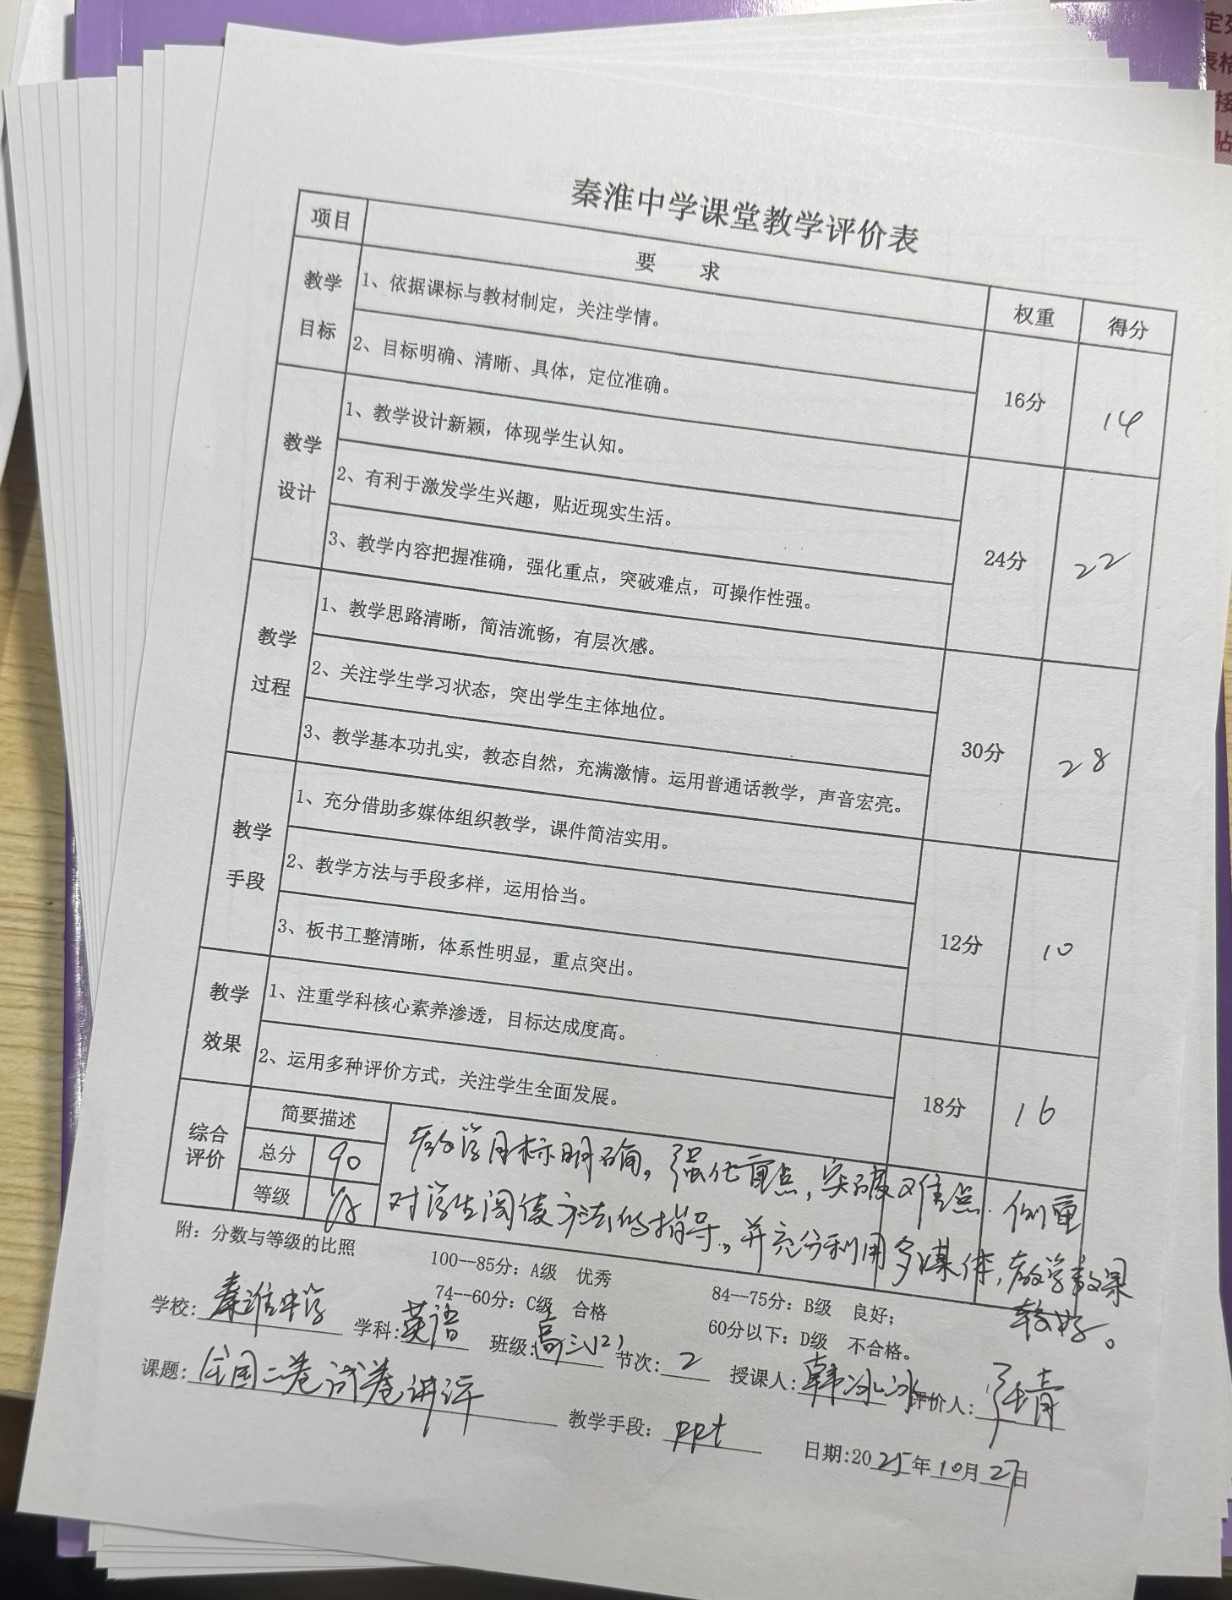 秦淮中学课堂教学评价表
项目 要 求 权重 得分
教学目标 1、依据课标与教材制定，关注学情。 16分 14
2、目标明确、清晰、具体，定位准确。
教学设计 1、教学设计新颖，体现学生认知。 24分 22
2、有利于激发学生兴趣，贴近现实生活。
3、教学内容把握准确，强化重点，突破难点，可操作性强。
教学过程 1、教学思路清晰，简洁流畅，有层次感。 30分 28
2、关注学生学习状态，突出学生主体地位。
3、教学基本功扎实，教态自然，充满激情。运用普通话教学，声音宏亮。
教学手段 1、充分借助多媒体组织教学，课件简洁实用。 12分 10
2、教学方法与手段多样，运用恰当。
3、板书工整清晰，体系性明显，重点突出。
教学效果 1、注重学科核心素养渗透，目标达成度高。 18分 16
2、运用多种评价方式，关注学生全面发展。
综合评价 简要描述
总分 90 教学目标明确，强化重点，突破难点，侧重
等级 对学生阅读方法的指导，并充分利用多媒体，教学效果
较好。
附：分数与等级的比照
100--85分：A级 优秀 84--75分：B级 良好；
74--60分：C级 合格 60分以下：D级 不合格。
学校：秦淮中学 学科：英语 班级：高三(2) 节次：2 授课人：韩冰冰 评价人：张青
课题：全国二卷试卷讲评 教学手段：ppt 日期:2025年10月27日
定
表格
接
贴